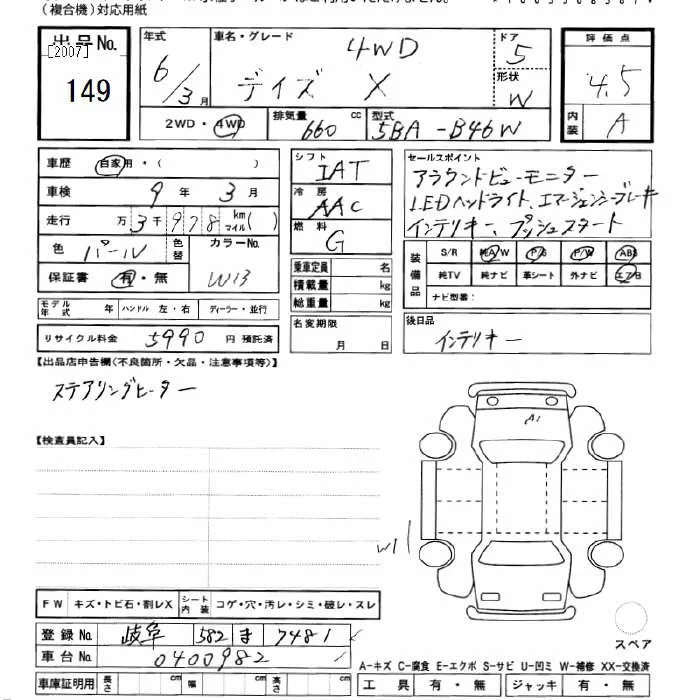 (複合機)対応用紙
出品No. [2007] 149
年式 6/3月
車名・グレード 4WD デイズ X
ドア 5
形状 W
評価点 4.5
内装 A
2WD・4WD
排気量 660 cc
型式 5BA-B46W
車歴 自家用・( )
車検 9年3月
走行 万3千978 km マイル( )
色 パール
色替
カラーNo. W13
保証書 有・無
モデル年式 年 ハンドル 左・右 ディーラー・並行
リサイクル料金 5990 円 預託済
シフト IAT
冷房 AAC
燃料 G
乗車定員 名
積載量 kg
総重量 kg
名変期限 月 日
セールスポイント
アラウンドビューモニター
LEDヘッドライト、エマージェンシーブレーキ
インテリキー、プッシュスタート
装備品 S/R 純A/W P/S P/W ABS
純TV 純ナビ 革シート 外ナビ エアB
ナビ型番:
後日品 インテリキー
【出品店申告欄(不良箇所・欠品・注意事項等)】
ステアリングヒーター
【検査員記入】
A1
W1
FW キズ・トビ石・割レX シート内装 コゲ・穴・汚レ・シミ・破レ・スレ
登録No. 岐阜 582 ま 7481
車台No. 0400982
車庫証明用 長さ cm 幅 cm 高さ cm
スペア
A-キズ C-腐食 E-エクボ S-サビ U-凹ミ W-補修 XX-交換済
工具 有・無 ジャッキ 有・無